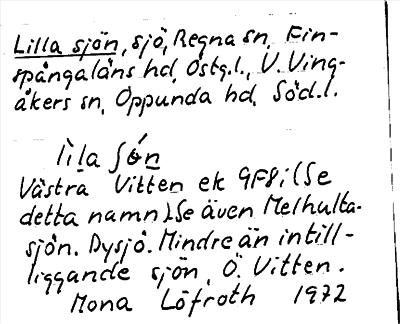 Lilla sjön, sjö, Regna sn, Fin-
spångaläns hd, Östg.l., V. Ving-
åkers sn, Oppunda hd, Söd.l.
Västra Vitten ek 9F8i (Se
detta namn). Se även Melhulta-
sjön. Dysjö. Mindre än intill-
liggande sjön, Ö. Vitten.
Mona Löfroth 1972